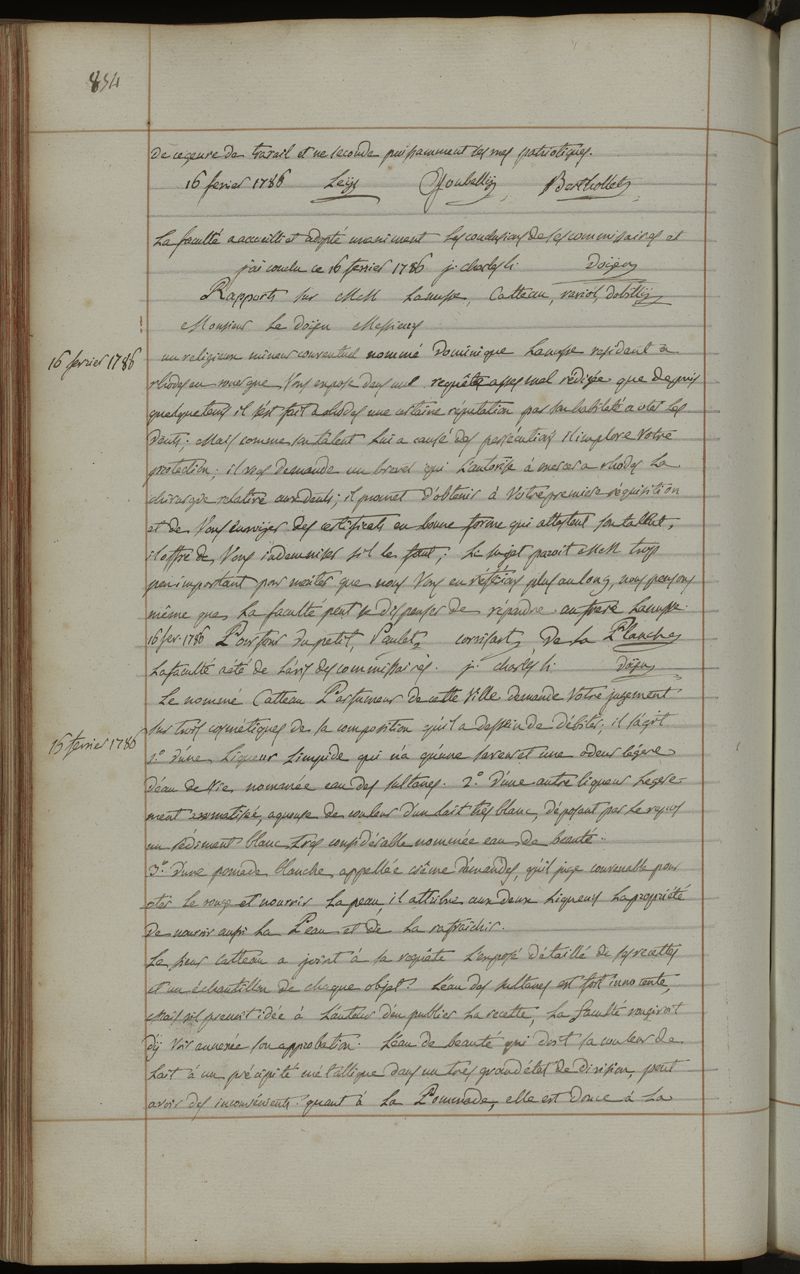 834
de ce genre de travail et ne seconde puissamment ses vues patriotiques.
16 fevrier 1786 Leys Berthollet
La faculté a accueilli et adopté unaniment les conclusions de ses commissaires et
j'ai conclu ce 16 fevrier 1786 j. charles h. Doÿen
Rapports sur MM Lamusse, Catteau,
Monsieur Le Doÿen Messieurs
16 fevrier 1786
un religieux mineur conventuel nommé Dominique Lamusse resident a
rhodes en rouergue Vous expose dans une requête asses mal rédigée que depuis
quelque tems il s'est fait a rhodes une certaine réputation par son habileté a oter les
Dents; Mais comme son talent lui a causé des persécutions il implore Votre
protection; il vous demande un brevet qui l'autorise à exercer a rhodes La
chirurgie relative aux dents; il promet d'obtenir à Votre premiere réquisition
et de Vous envoyer des certificats en bonne forme qui attestent son talent,
il offre de Vous indemniser s'il le faut; Le sujet paroit MM trop
peu important pour meriter que nous Vous en plus au long, nous pensons
même que La faculté peut se dispenser de répondre au frere Lamusse.
16 fev. 1786 Pourfour du petit, Paulet, corvisart, De La Planche
La faculté a été de L'avis des commissaires. j. charles h. doÿen
15 fevrier 1786
Le nommé Catteau Parfumeur de cette Ville demande Votre jugement
sur trois cosmétiques de sa composition qu'il a dessein de débiter; il s'agit
1.° d'une Liqueur Limpide qui n'a qu'une saveur et une odeur légere
d'eau de vie nommée eau des sultanes. 2.° D'une autre liqueur Legere-
ment aromatisée, aqueuse de couleur d'un lait très blanc, déposant par le repos
un sédiment blanc très considérable nommée eau de beauté.
3.° d'une pomade blanche appellée crême d'amandes, qu'il juge convenable pour
oter le rouge et nourrir La peau, il attribue aux deux Liqueurs La propriété
de nourrir aussi La Peau et de La rafraichir.
Le sieur Catteau a joint à sa requête L'exposé détaillé de ses recettes
et un échantillon de chaque objet. L'eau des sultanes est fort innocente,
Mais s'il prenoit idée à L'auteur d'en publier La recette, La faculté rougiroit
d'ÿ Voir annexée son approbation. L'eau de beauté qui doit sa couleur de
Lait à un précipité métallique dans un très grand état de division, peut
avoir des inconvénients. quant à La Pommade, elle est douce à La